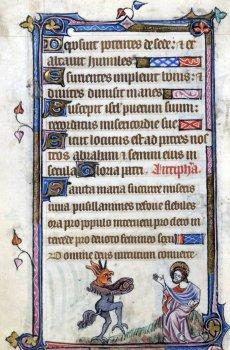 Deposuit potentes de sede: et ex
altavit humiles
Esurientes implevit bonis: et
divites dimisit inanes
Suscepit isrl puerum suum:
recordatus misericordie sue
Sicut locutus est ad patres nos
tros abraham et semini eius in
secula Gloria patri Antipha
Sancta maria succurre miseris
iuva pusillanimes refove flebiles
ora pro populo interveni pro clero in
tercede pro devoto femineo sexu
omne